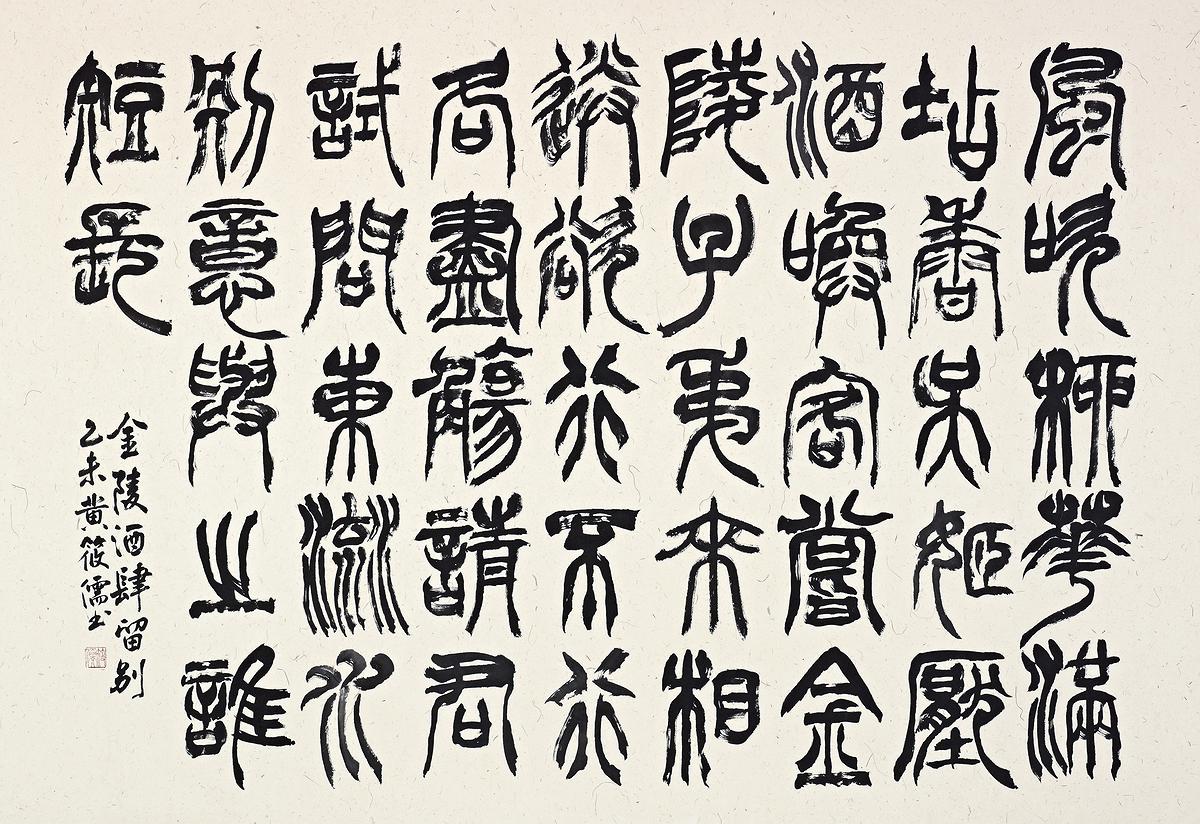 風吹柳華滿
坫香吳姬壓
酒喚客嘗金
陵子弟來相
送欲行不行
各盡觴請君
試問東流水
別意與之誰
短長
金陵酒肆留別
乙未黃筱儒書